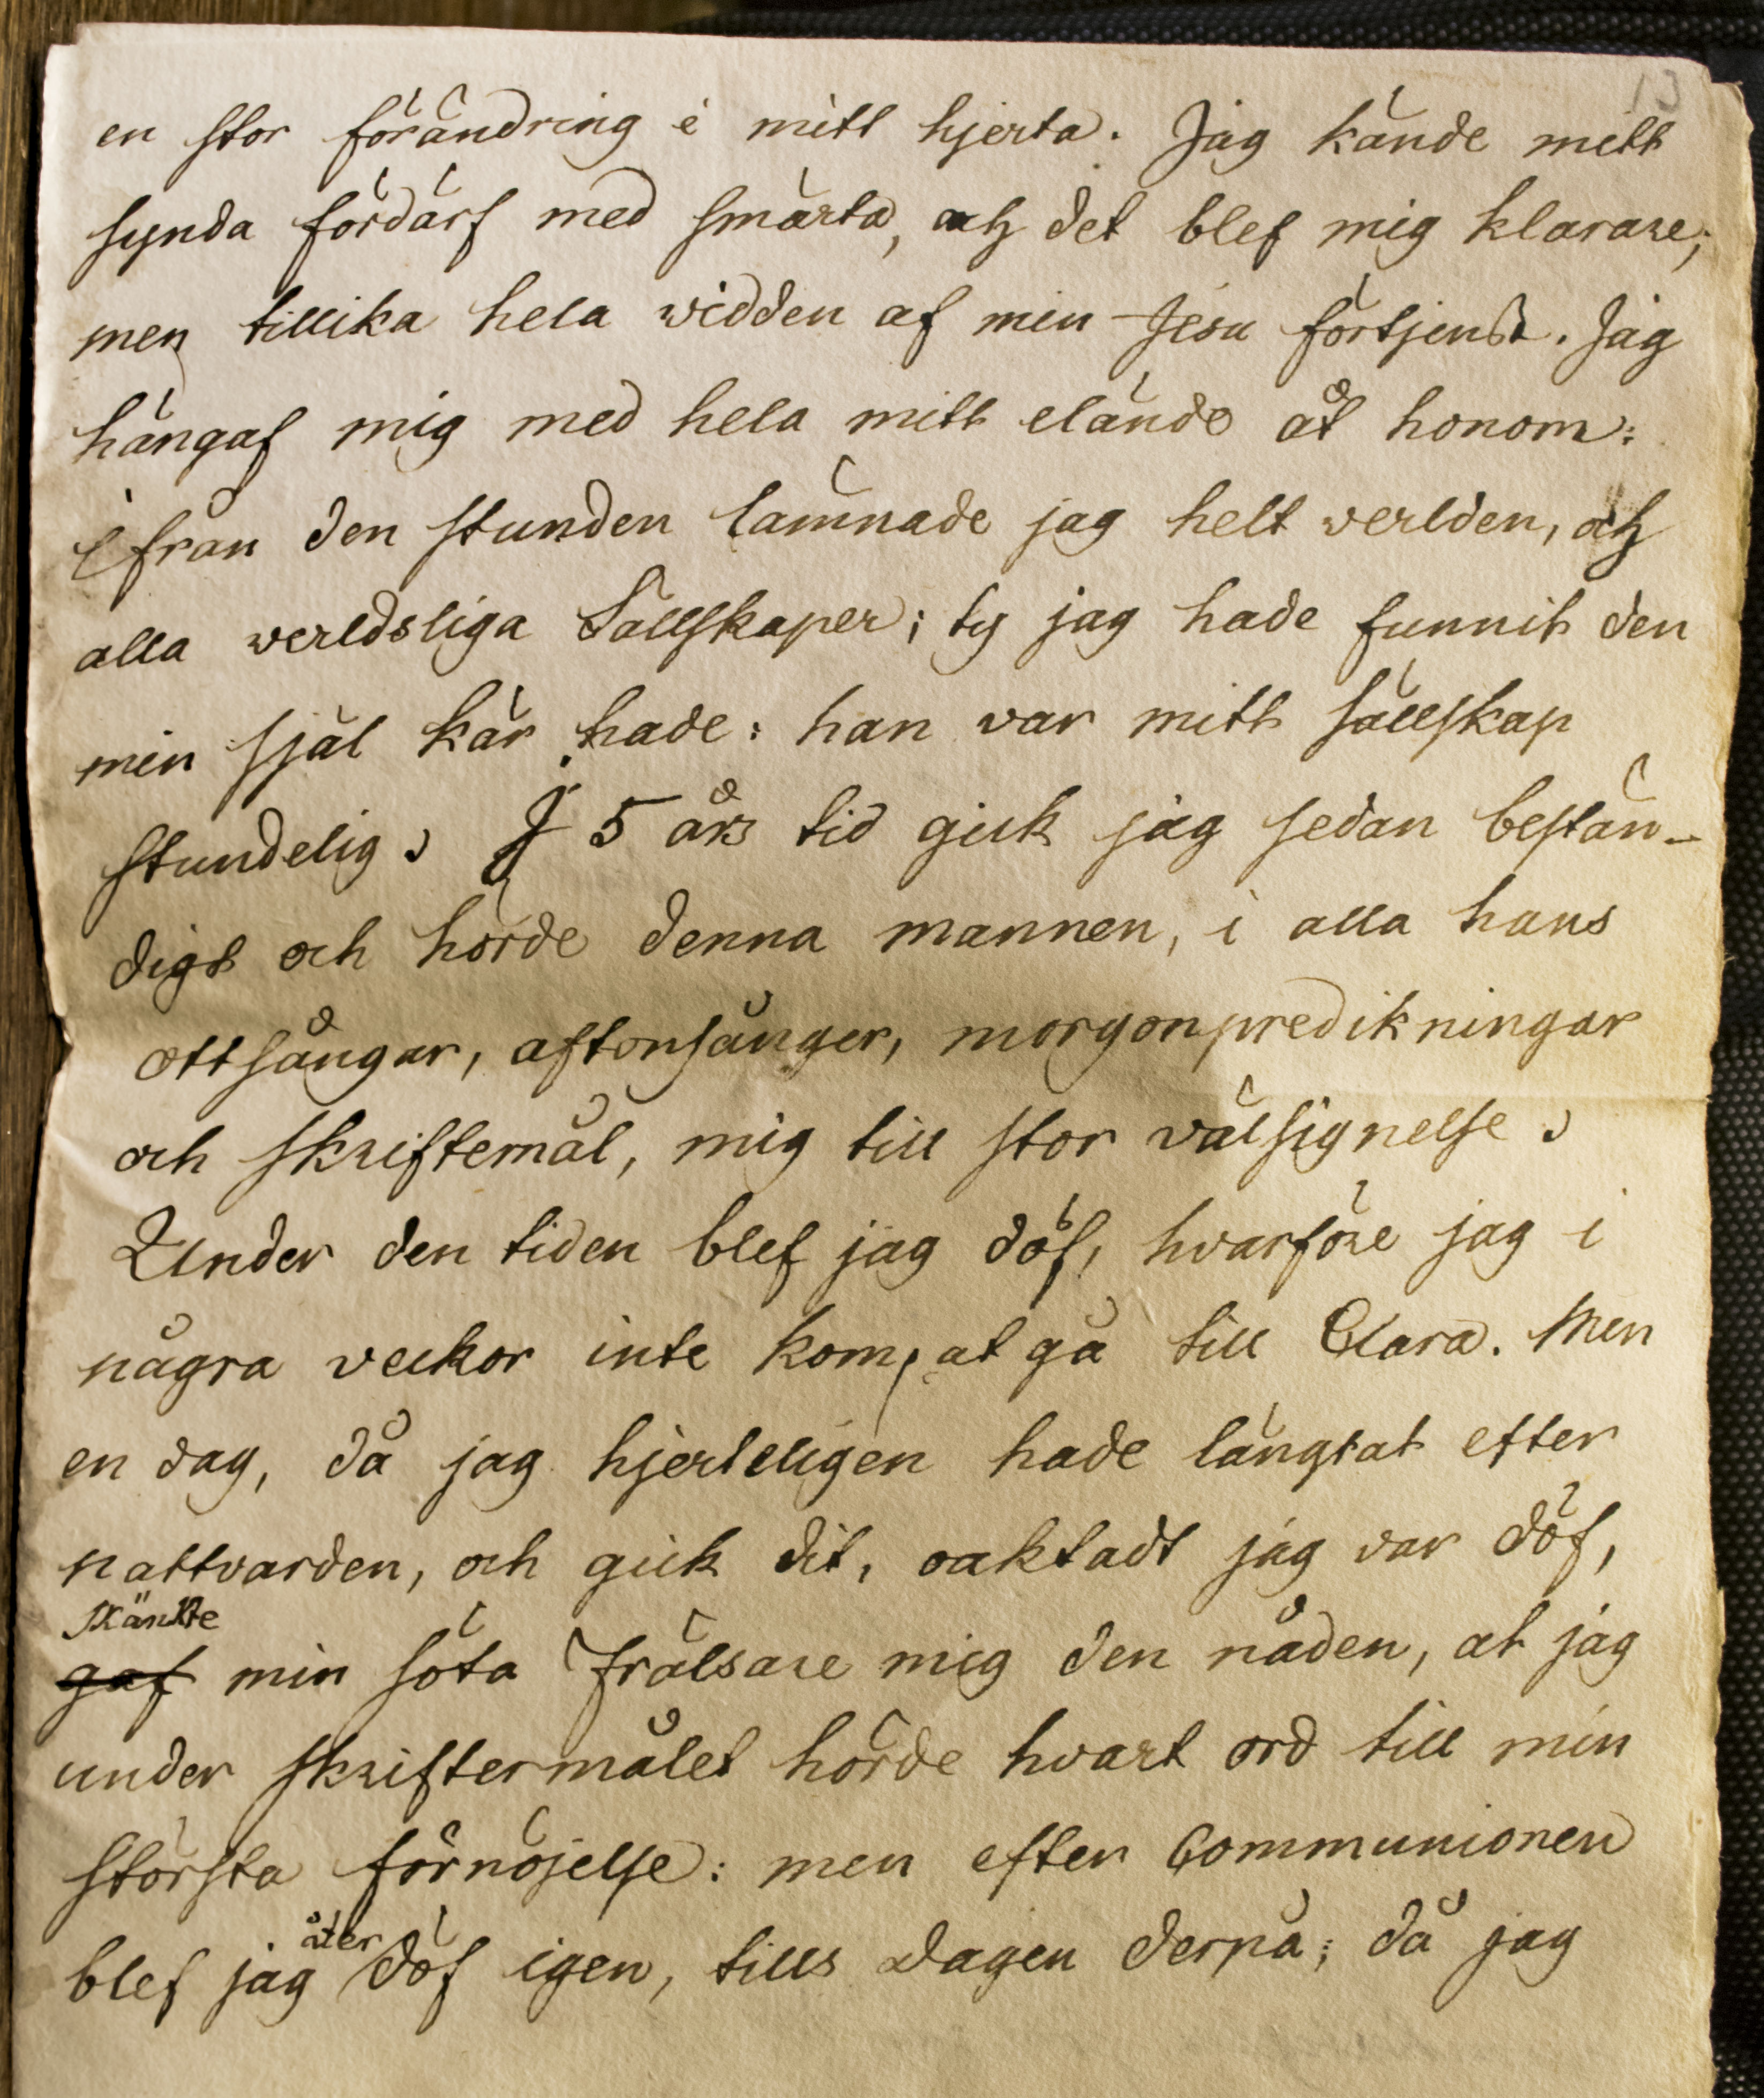 13
en stor förändring i mitt hjerta. Jag kände mitt
synda fördärf med smärta, och det blef mig klarare;
men tillika hela widden af min Jesu förtjenst. Jag
hängaf mig med hela mitt elände åt honom:
ifrån den stunden lämnade jag helt verlden, och
alla werldsliga Sällskaper; ty jag hade funnit den
min själ kär hade: han var mitt sällskap
stundelig. I 5 års tid gick jag sedan bestän-
digt och hörde denna mannen, i alla hans
ottsångar, aftonsånger, morgonpredikningar
och skriftemål, mig till stor välsignelse.
Under den tiden blef jag döf, hvarföre jag i
några veckor inte kom, at gå till Clara. Men
en dag, då jag hjerteligen hade längtat efter
nattvarden, och gick dit, oaktadt jag var döf,
skänkte
gaf min söta Frälsare mig den nåden, at jag
under skriftermålet hörde hvart ord till min
största förnöjelse: men efter Communionen
åter
blef jag döf igen, tills dagen derpå; då jag